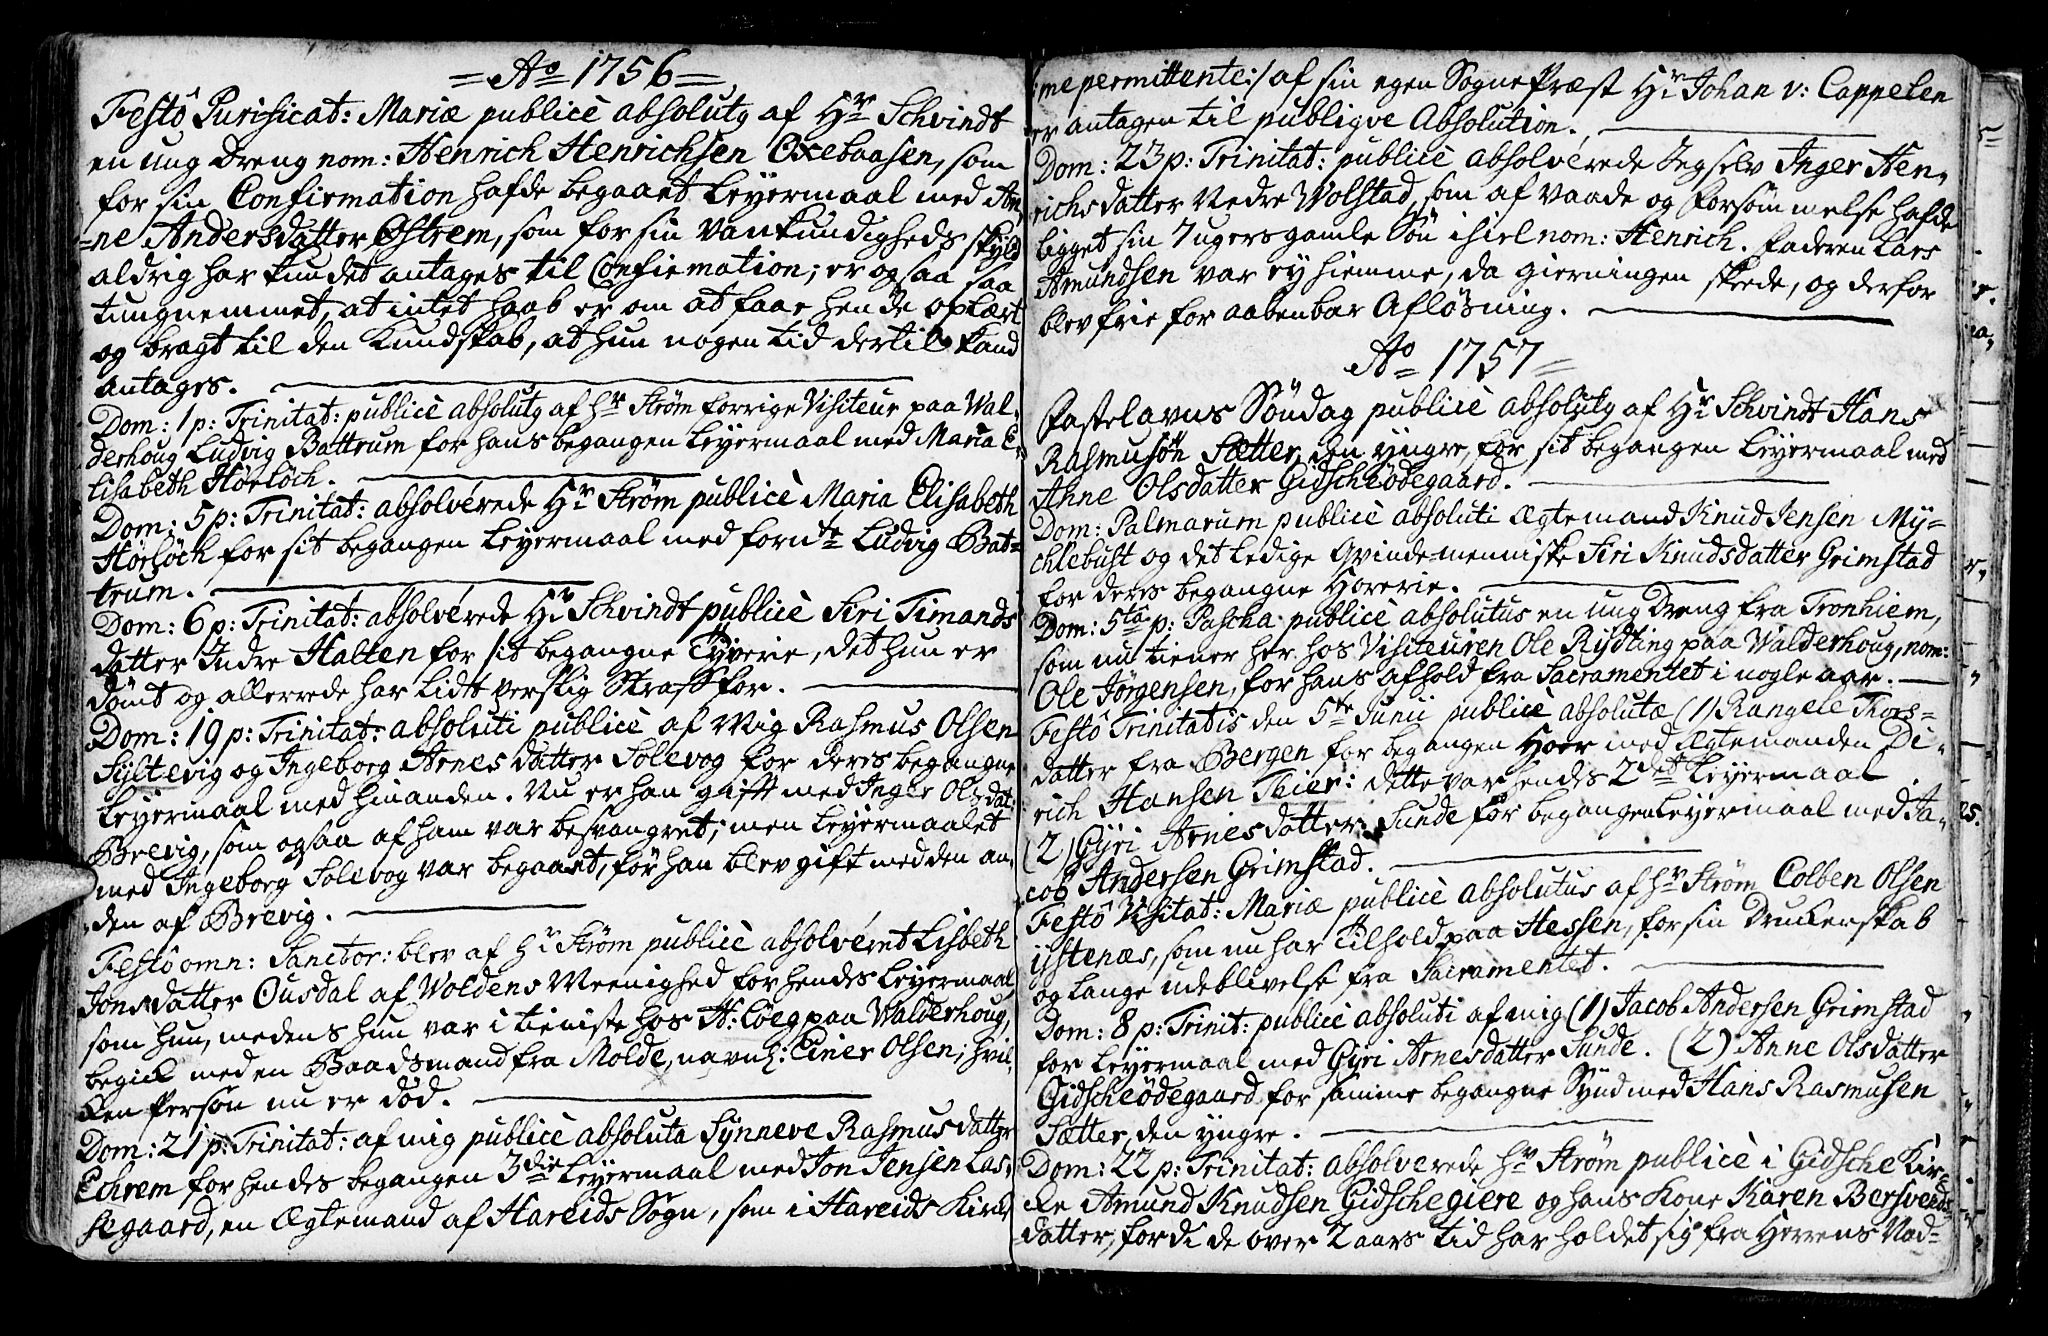 = Ao 1756 =
Festô Purificat: Mariæ publicè absolutg af Hr Schvindt
en ung Dreng nom: Henrich Henrichsen Oxebaasen, som
for sin Confirmation hafde begaaet Leyermaal med An,
=ne Andersdatter Østrem, som for sin Vankundigheds skyld
aldrig har kundet antages til Confirmation; er ogsaa saa
tungnemmet, at intet haab er om at faae hende oplært
og bragt til den Kundskab, at hun nogen tid dertil kand
antages.
Dom: 1 p: Trinitat: publicè absolutg af Hr Strøm forrige Visiteur paa Wal-
derhoug Ludvig Battrum for hans begangen Leyermaal med Maria E-
lisabeth Hörlöch.
Dom: 5 p: Trinitat: absolverede Hr Strøm publicè Maria Elisabeth
Hörlöch for sit begangen Leyermaal med fornte Ludvig Bat=
trum.
Dom: 6 p: Trinitat: absolverede Hr Schvindt publicè Siri Simands
datter Indre Halten for sit begangne Tyverie, det hun er
dömt og allerrede har lidt verslig Straff for.
Dom: 19 p: Trinitat: absoluti publicè af Mig Rasmus Olsen
Syltevig og Ingeborg Arnesdatter Solevog for deres begangne
Leyermaal med hinanden. Nu er han gift med Inger Olsdat:
Brevig, som ogsaa af ham var besvangret; men Leyermaalet
med Ingeborg Solevog var begaaet, för han blev gift med den an,
den af Brevig.
Festô omn: Sanctor: blev af Hr Strøm publicè absolvéret Lisbeth
Jonsdatter Ousdal af Woldens Meenighed for hendes Leyermaal,
som hun, medens hun var i tieniste hos A: Coeg paa Walderhoug,
begick med en Baadsmand fra Molde, navnl: Einer Olsen; hvil,
ken Person nu er död.
Dom: 21 p: Trinitat: af mig publicè absoluta Synneve Rasmusdatter
Echrem for hendes begangen 3die Leyermaal med Jon Jensen Cas,
segaard, en Ægtemand af Hareids Sogn, som i Hareids Kirke
:me permittente:/ af sin egen SognePræst Hr Johan v: Cappelen
er antagen til publiqve Absolution.
Dom: 23 p: Trinitat: publicè absolverede Jegselv Inger Hen,
richsdatter Nedre Wolstad, som af Vaade og Forsömmelse hafde
ligget sin 7 ugers gamle Sön ihiel nom: Henrich. Faderen Lars
Amundsen var ey hiemme, da gierningen skede, og derfor
blev frie for aabenbar Aflösning.
Ao 1757 =
Fastelavns Söndag publicè absolutg af Hr Schvindt Hans
Rasmusön Sætter, den yngre, for sit begangen Leyermaal med
Anne Olsdatter Gidscheödegaard.
Dom: Palmarum publicè absoluti Ægtemand Knud Jensen My=
chlebust og det ledige Qvindemenniske Siri Knudsdatter Grimstad
for deres begangne Horerie.
Dom: 5ta p: Pascha publicè absolutus en ung Dreng fra Tronhiem,
som nu tiener her hos Visiteuren Ole Rydting paa Walderhoug, nom:
Ole Jørgensen, for hans afhold fra Sacramentet i nogle aar.
Festô Trinitatis den 5te Junii publicè absolutæ (1) Rangele Thors=
datter fra Bergen for begangen Hoer med Ægtemanden Di,
rich Hansen Thier: dette var hendes 2det Leyermaal
(2) Gyri Arnesdatter Sunde for begangen Leyermaal med Ja,
cob Andersen Grimstad.
Festô Visitat: Mariæ publicè absolutus af Hr Strøm Colben Olsen
ystenæs, som nu har Tilhold paa Hessen, for sin Druckenskab
og lange udeblivelse fra Sacramentet.
Dom: 8 p: Trinit: publicè absoluti af mig (1) Jacob Andersen Grimstad
for Leyermaal med Gyri Arnesdatter Sunde. (2) Anne Olsdatter
Gidscheödegaard for samme begangne Synd med Hans Rasmusen
Sætter, den yngre.
Dom: 22 p: Trinitat: absolverede Hr Strøm publicè i Gidsche Kir,
ke Amund Knudsen Gidschegiere og hans Kone Karen Bersvends
datter, fordi de over 2 aars tid har holdet sig fra Herrens Nad=